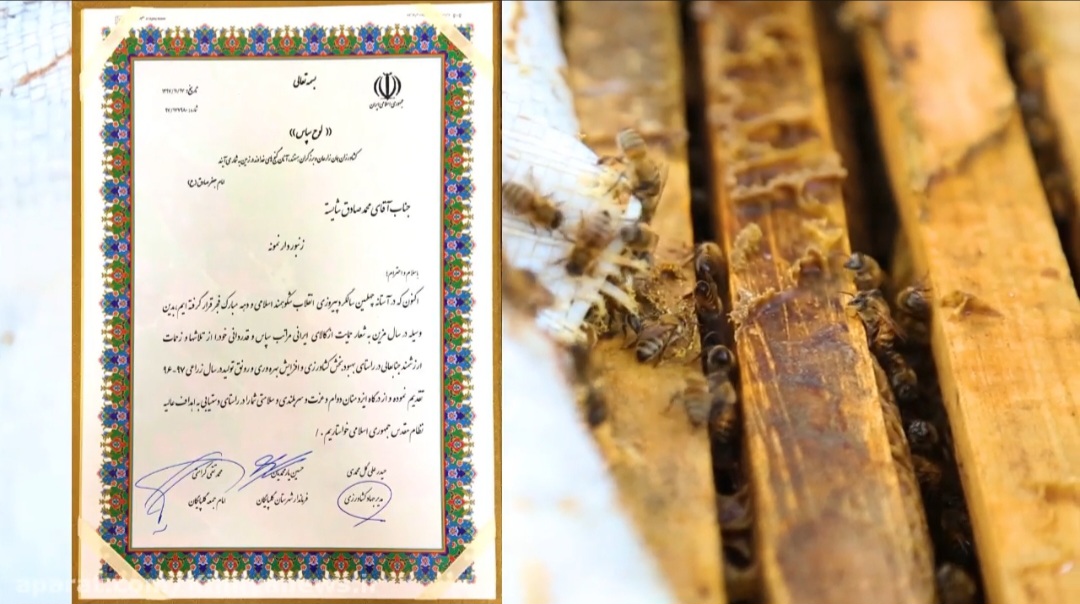 بسمه تعالی
جمهوری اسلامی ایران
تاریخ:
شماره:
«لوح سپاس»
امام جعفر صادق (ع)
جناب آقای محمد صادق شایسته
زنبور دار نمونه
با سلام و احترام؛
اکنون که در آستانه چهلمین سالگرد پیروزی انقلاب شکوهمند اسلامی و دهه مبارک فجر قرار گرفته ایم بدین
وسیله در سال مزین به شعار حمایت از کالای ایرانی مراتب سپاس و قدردانی خود را از تلاشها و زحمات
ارزشمند جنابعالی در راستای بهبود بخش کشاورزی و افزایش بهره وری و رونق تولید در سال زراعی ۹۷-۹۶
تقدیم نموده و از درگاه ایزد منان دوام و عزت و سربلندی و سلامتی شما را در راستای دستیابی به اهداف عالیه
نظام مقدس جمهوری اسلامی خواستاریم . /
حیدر علی گل محمدی
مدیر جهاد کشاورزی
حسین یارمحمدیان
فرماندار شهرستان گلپایگان
محمد تقی گرامتی
امام جمعه گلپایگان